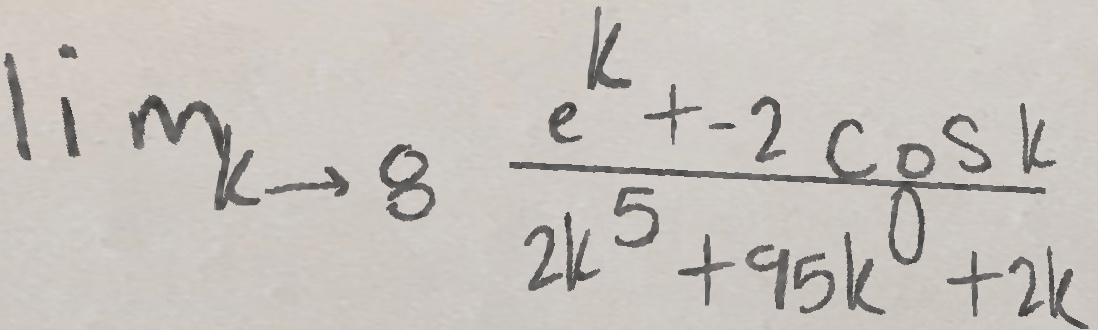 \lim_{k \to 8} \frac{e^k + -2 \cos k}{2k^5 + 95k^0 + 2k}